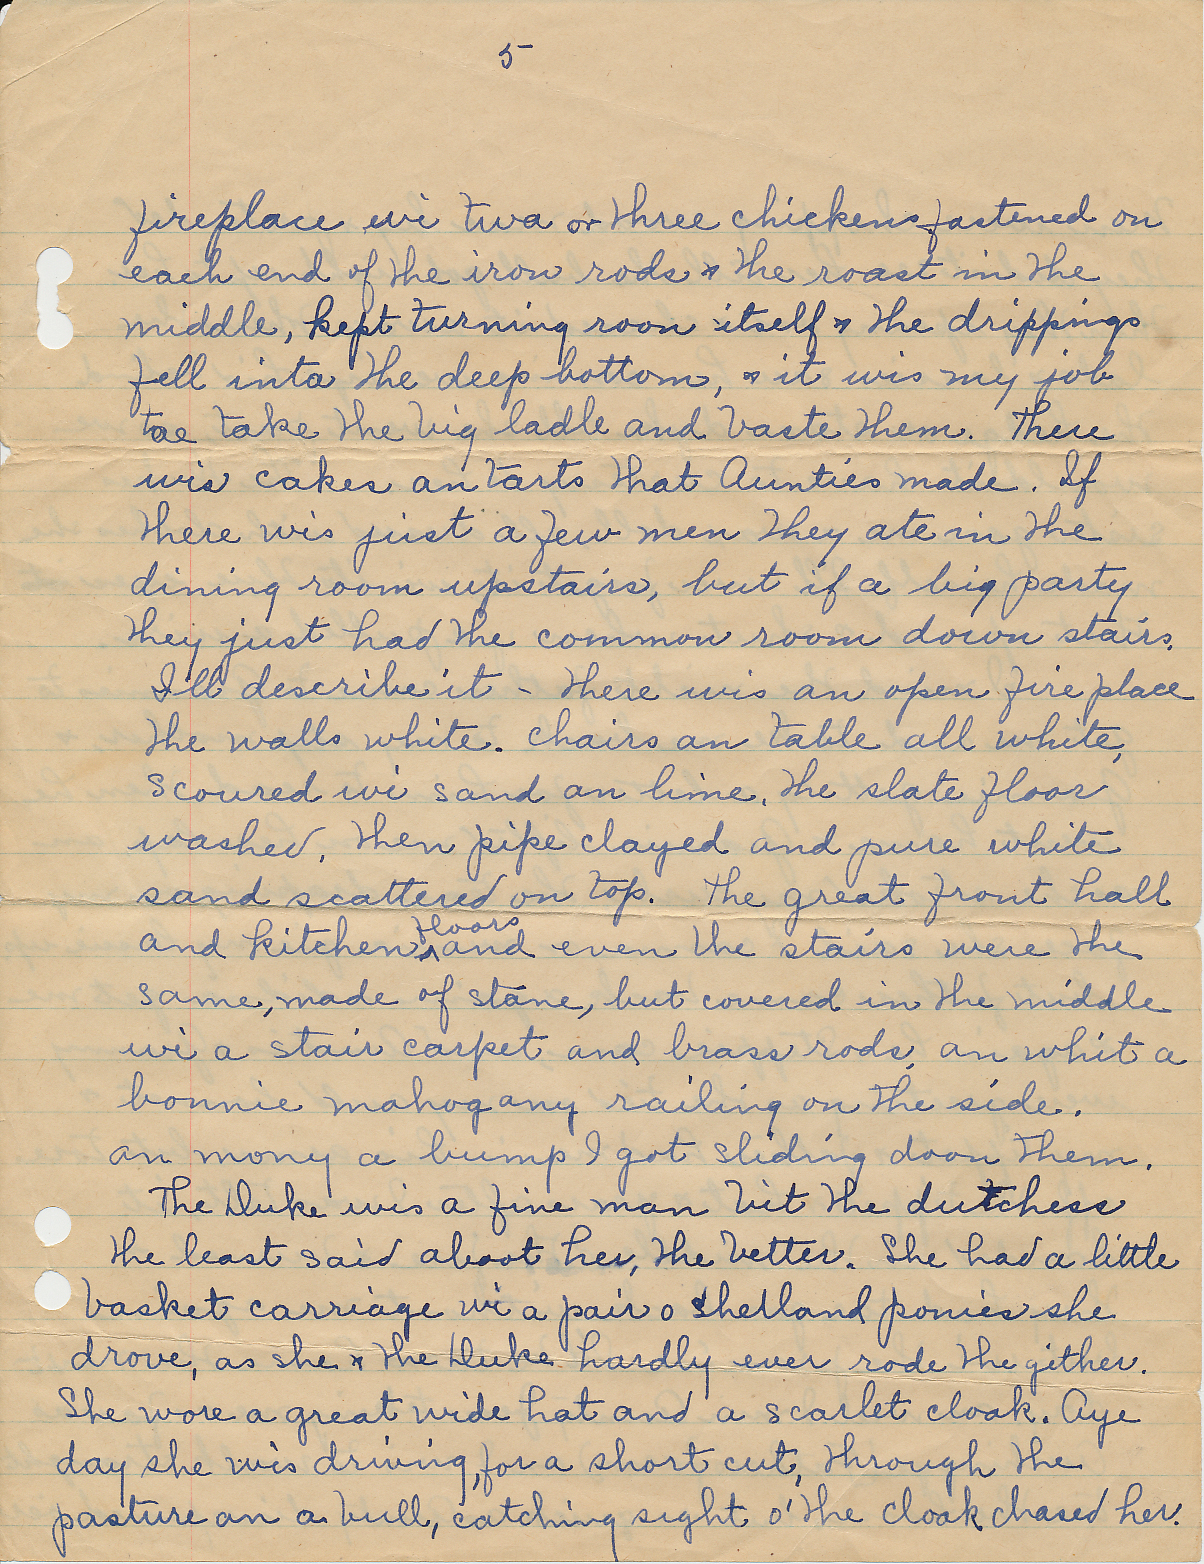 5
fireplace wi twa or three chickens fastened on
each end of the iron rods & the roast in the
middle, kept turning roon itself & the drippings
fell inta the deep bottom, & it wis my job
tae take the big ladle and baste them. There
wis cakes an tarts that Aunties made. If
there wis just a few men they ate in the
dining room upstairs, but if a big party
they just had the common room down stairs.
I'll describe it - there wis an open fire place
the walls white. chairs an table all white,
scoured wi sand an lime, the slate floor
washed, then pipe clayed and pure white
sand scattered on top. The great front hall
floors
and kitchen ^ and even the stairs were the
same, made of stane, but covered in the middle
wi a stair carpet and brass rods, an whit a
bonnie mahogany railing on the side.
an mony a bump I got sliding doon them.
The Duke wis a fine man bit the dutchess
the least said aboot her, the better. She had a little
basket carriage wi a pair o Shetland ponies she
drove, as she & the Duke hardly ever rode the gither.
She wore a great wide hat and a scarlet cloak. Aye
day she wis driving, for a short cut, through the
pasture an a bull, catching sight o' the cloak chased her.